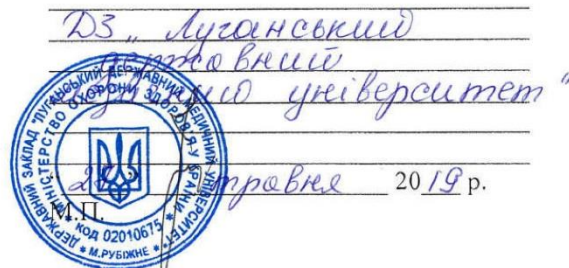 ДЗ „ Луганський
державний
медичний університет"
"22" травня 2019 р.
М.П.
ДЕРЖАВНИЙ ЗАКЛАД "ЛУГАНСЬКИЙ ДЕРЖАВНИЙ МЕДИЧНИЙ УНІВЕРСИТЕТ"
МІНІСТЕРСТВО ОХОРОНИ ЗДОРОВ'Я УКРАЇНИ
КОД 02010675
М.РУБІЖНЕ